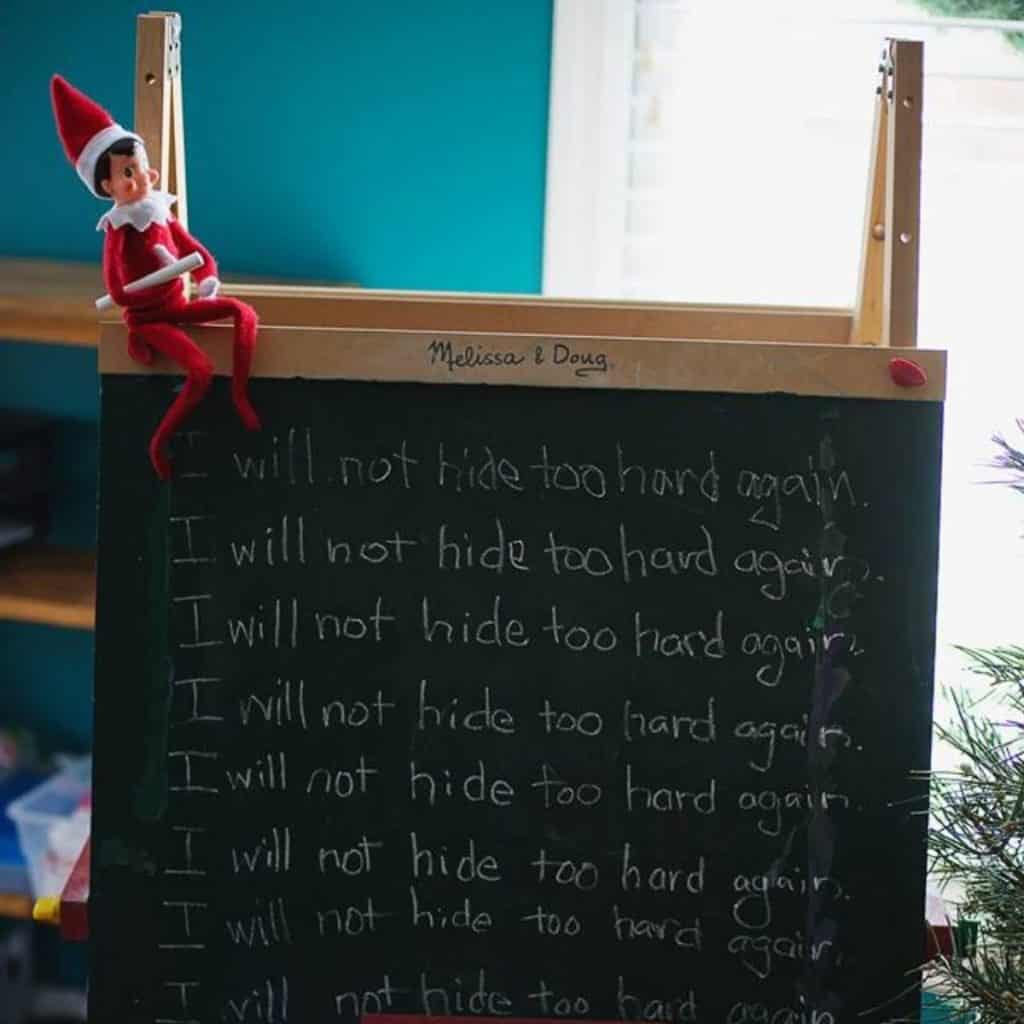 Melissa & Doug
I will not hide too hard again.
I will not hide too hard again.
I will not hide too hard again.
I will not hide too hard again.
I will not hide too hard again.
I will not hide too hard again.
I will not hide too hard again.
I will not hide too hard again